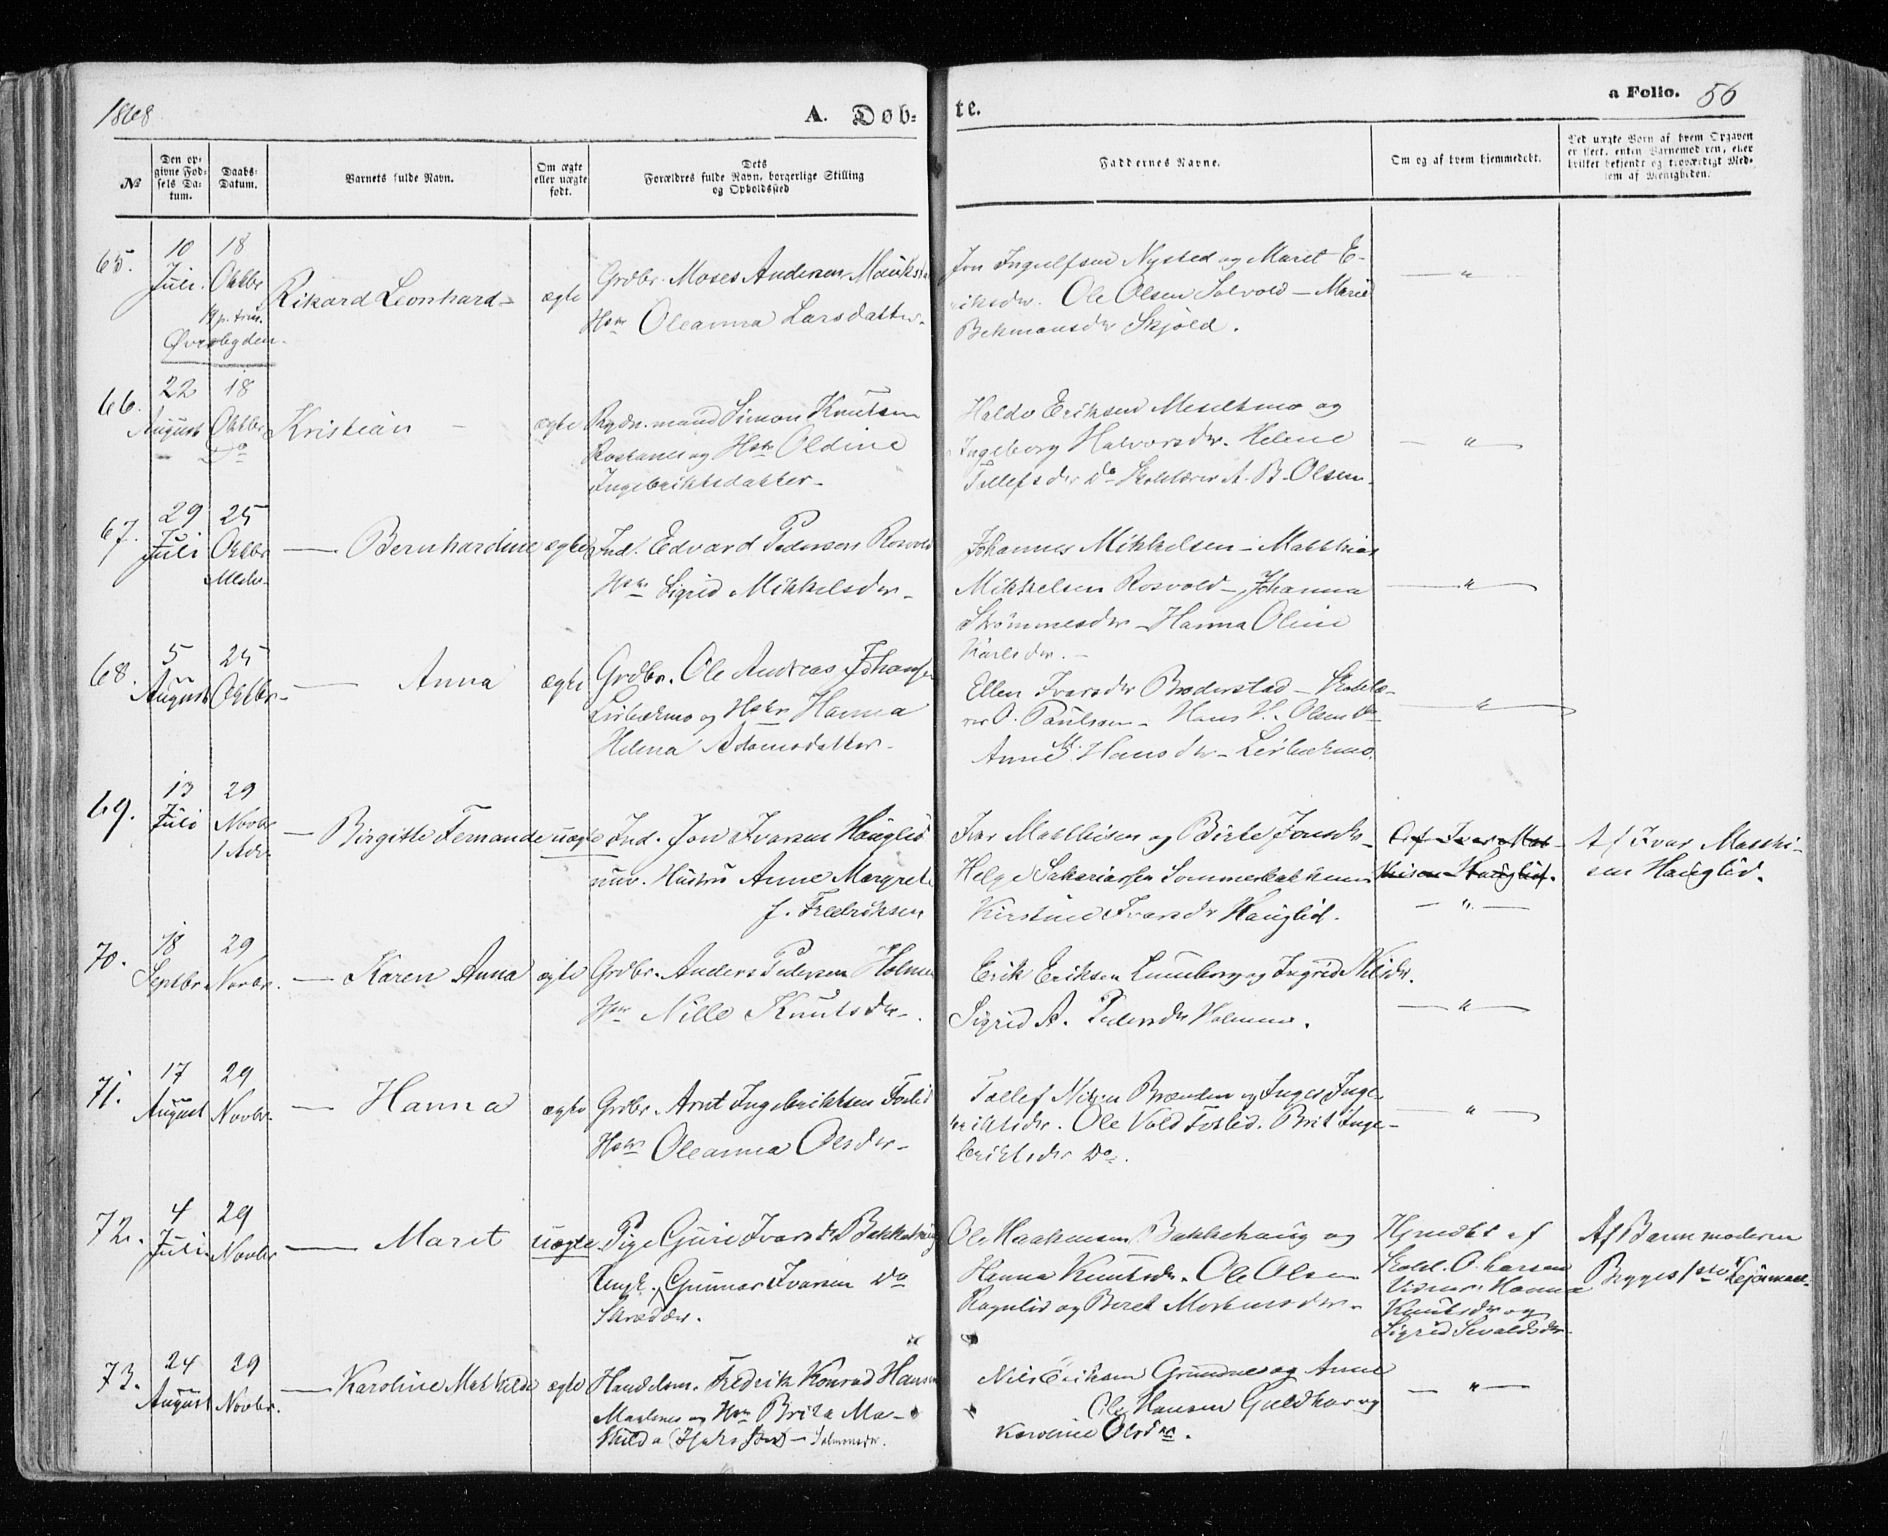 1868
A. Døb-
te.
a Folio. 56
№
Den op-
givne Fød-
sels Da-
tum.
Daabs-
Datum.
Barnets fulde Navn.
Om ægte
eller uægte
født.
Dets
Forældres fulde Navn, borgerlige Stilling
og Opholdssted
Faddernes Navne.
Om og af hvem hjemmedøbt.
Ved uægte Børn af hvem Opgaven
er skeet, enten Barnemoderen, eller
hvilket bekjendt og troværdigt Med-
lem af Menigheden.
65.
10
Juli.
18
Oktbr
Øverbygden.
Rikard Leonhard
ægte
Grdbr. Moses Andersen
Hstr Oleanna Larsdatter.
Jon Ingulfsen Nysted og Maret E-
riksdr. Ole Olsen Solvold – Marie
Bekmansdr Skjold.
— " —
66.
22
August
18
Oktbr
Do
Kristian
ægte
Rydn.mand Simon Knutsen
og Hstr Oldine
Ingebriktsdatter
Haldo Eriksen og
Ingeborg Halvorsdr. Helene
Tollefsdr Do A. B. Olsen
— " —
67.
29
Juli
25
Oktbr
— Bernhardine
ægte
Ind. Edvard Pedersen Rosvold
Hstr Sigrid Mikkelsdr
Johannes Mikkelsen – Matthias
Mikkelsen Rosvold – Johanna
Hanna Oline
Karlsdr.
— " —
68.
5
August
25
Oktbr
— Anna
ægte
Grdbr. Ole Andreas Johansen
og Hstr Hanna
Helena Adamsdatter
Ellen Ivarsdr Brøderstad – Skolelæ-
rer O. Paulsen – Hans H. Olsen Do
Anne M. Hansdr
— " —
69.
13
Juli
29
Novbr
— Birgitte Fernande
uægte
Ind. Jon Ivarsen Hauglid
nuv. Hustru Anne Margrete
f. Fredriksen
Ivar Matthisen og Birte Jonsdr
Helge Sakariassen
Kirstine Ivarsdr Hauglid.
Af Ivar Mat-
thisen Hauglid.
— " —
Af Ivar Matthi-
sen Hauglid.
70.
18
Septbr
29
Novbr.
— Karen Anna
ægte
Grdbr. Anders Pedersen Holmen
Hstr Nille Knutsdr.
Erik Eriksen Luneborg og Ingrid Nilsdr.
Sigrid A. Pedersdr Holmen.
— " —
71.
17
August
29
Novbr.
— Hanna
ægte
Grdbr. Arnt Ingebriktsen Foslid
Hstr Oleanna Olsdr
Tollef Nilsen Brænden og Inger Inge-
briktsdr. Ole Vold Foslid. Brit Inge-
briktsdr Do.
— " —
72.
4
Juli
29
Novbr
— Maret
uægte
Pige Guri Ivarsdr Bakkehaug
Ungk. Gunnar Ivarsen Do
Ole Haakensen Bakkehaug og
Hanna Knutsdr. Ole Olsen
Rognlid og Beret Mortensdr.
Hjmdbt af
Skolel. O. Larsen
Hanna
Knutsdr og
Sigrid Sivaldsdr
Af Barnemoderen
Begges 1ste Leiermaal
73.
24
August
29
Novbr.
— Karoline Mathilde
ægte
Handelsm. Fredrik Konrad Hansen
og Hstr Brita Ma-
thilda
Nils Eriksen Grundnes og Anne
Ole Hansen Guldhav og
Karoline Olsdr.
— " —